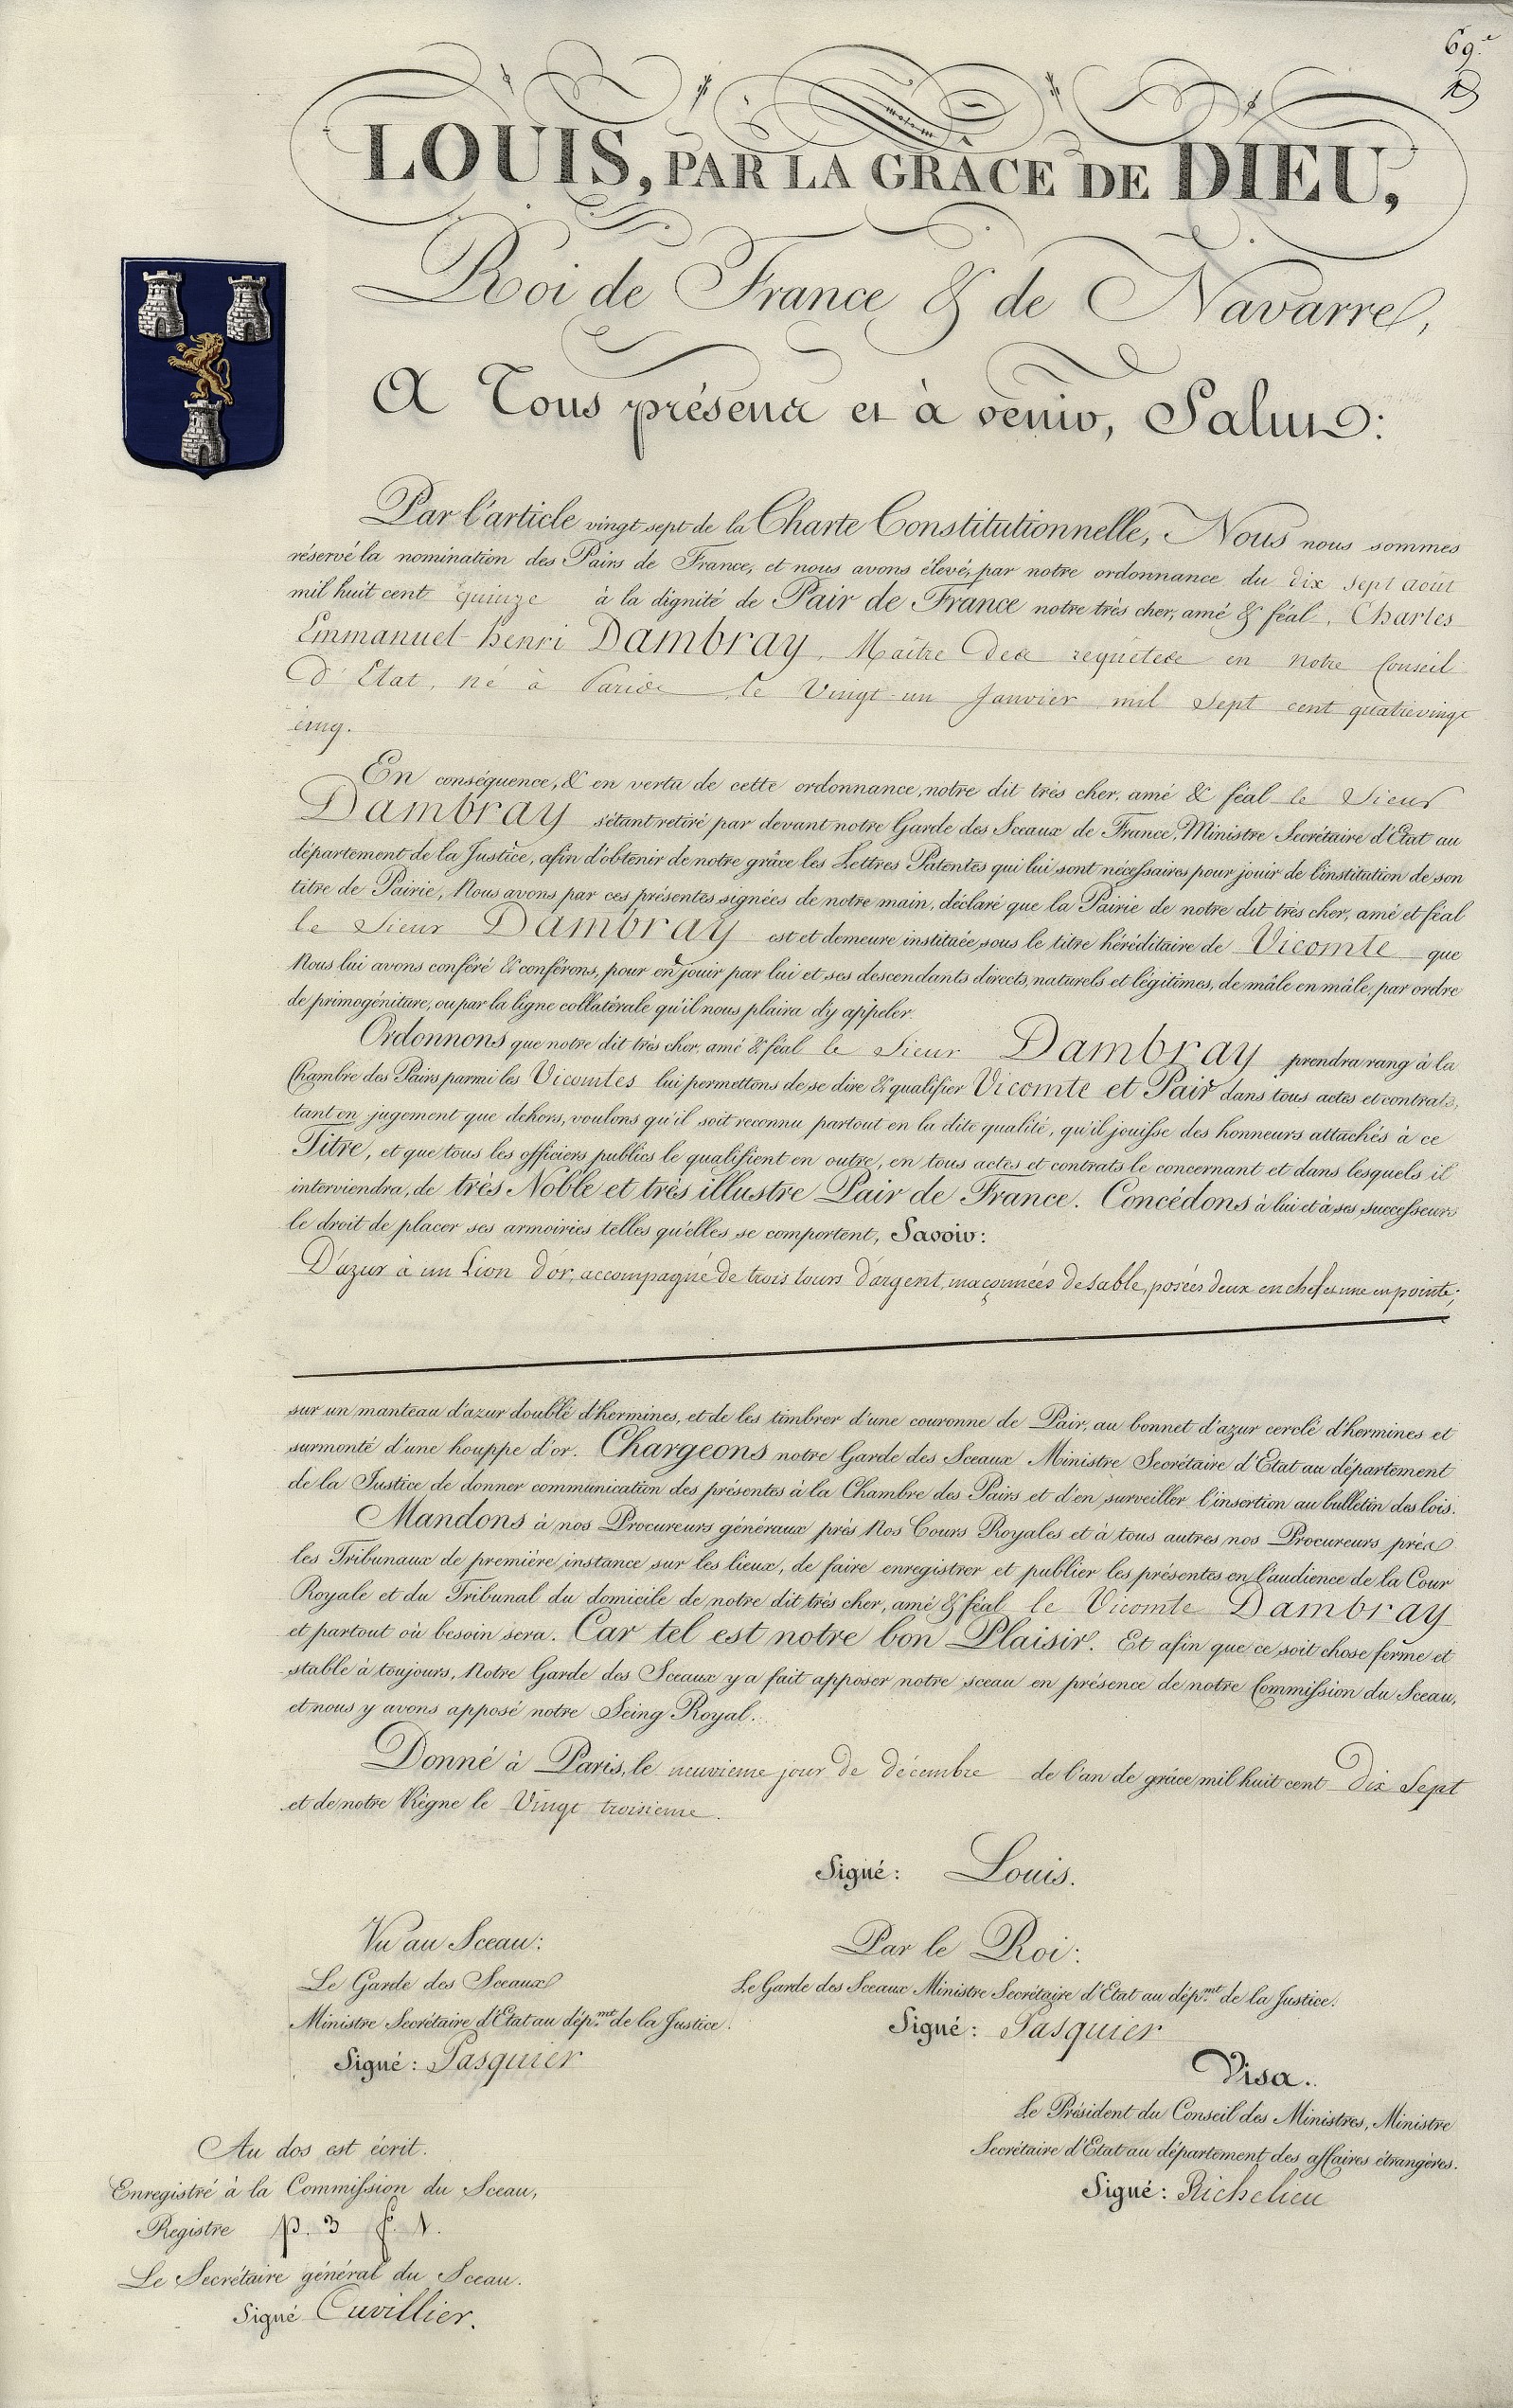 69.e
LOUIS, PAR LA GRÂCE DE DIEU,
Roi de France & de Navarre,
A Tous présens et à venir, Salut:
Par l'article vingt sept de la Charte Constitutionnelle, Nous nous sommes
réservé la nomination des Pairs de France, et nous avons élevé, par notre ordonnance du dix sept août
mil huit cent quinze à la dignité de Pair de France notre très cher, amé & féal, Charles
Emmanuel-henri Dambray, Maître des requêtes en notre Conseil
d'Etat, né à Paris le Vingt-un Janvier mil sept cent quatrevingt
cinq.
En conséquence, & en vertu de cette ordonnance, notre dit très cher, amé & féal le Sieur
Dambray s'étant retiré par devant notre Garde des Sceaux de France, Ministre Secrétaire d'Etat au
département de la Justice, afin d'obtenir de notre grâce les Lettres Patentes qui lui sont nécessaires pour jouir de l'institution de son
titre de Pairie, Nous avons par ces présentes signées de notre main, déclaré que la Pairie de notre dit très cher, amé et féal
le Sieur Dambray est et demeure instituée sous le titre héréditaire de Vicomte que
Nous lui avons conféré & conférons, pour en jouir par lui et ses descendants directs, naturels et légitimes, de mâle en mâle, par ordre
de primogéniture, ou par la ligne collatérale qu'il nous plaira d'y appeler.
Ordonnons que notre dit très cher, amé & féal le Sieur Dambray prendra rang à la
Chambre des Pairs parmi les Vicomtes lui permettons de se dire & qualifier Vicomte et Pair dans tous actes et contrats,
tant en jugement que dehors, voulons qu'il soit reconnu partout en la dite qualité, qu'il jouisse des honneurs attachés à ce
Titre, et que tous les officiers publics le qualifient en outre, en tous actes et contrats le concernant et dans lesquels il
interviendra, de très Noble et très illustre Pair de France. Concédons à lui et à ses successeurs
le droit de placer ses armoiries telles qu'elles se comportent, Savoir:
D'azur à un Lion d'or, accompagné de trois tours d'argent, maçonnées de sable, posées deux en chef et une en pointe;
sur un manteau d'azur doublé d'hermines, et de les timbrer d'une couronne de Pair, au bonnet d'azur cerclé d'hermines et
surmonté d'une houppe d'or. Chargeons notre Garde des Sceaux Ministre Secrétaire d'Etat au département
de la Justice de donner communication des présentes à la Chambre des Pairs et d'en surveiller l'insertion au bulletin des lois.
Mandons à nos Procureurs généraux près Nos Cours Royales et à tous autres nos Procureurs près
les Tribunaux de première instance sur les lieux, de faire enregistrer et publier les présentes en l'audience de la Cour
Royale et du Tribunal du domicile de notre dit très cher, amé & féal le Vicomte Dambray
et partout où besoin sera. Car tel est notre bon Plaisir. Et afin que ce soit chose ferme et
stable à toujours, Notre Garde des Sceaux y a fait apposer notre sceau en présence de notre Commission du Sceau,
et nous y avons apposé notre Seing Royal.
Donné à Paris, le neuvieme jour de décembre de l'an de grâce mil huit cent Dix Sept
et de notre Règne le Vingt troisieme.
Signé: Louis.
Vu au Sceau:
Le Garde des Sceaux
Ministre Secrétaire d'Etat au dép.mt de la Justice.
Signé: Pasquier
Par le Roi:
Le Garde des Sceaux Ministre Secrétaire d'Etat au dép.mt de la Justice.
Signé: Pasquier
Visa.
Le Président du Conseil des Ministres, Ministre
Secrétaire d'Etat au département des affaires étrangères.
Signé: Richelieu
Au dos est écrit.
Enregistré à la Commission du Sceau,
Registre p. 3 f. 1.
Le Secrétaire général du Sceau.
Signé Cuvillier.